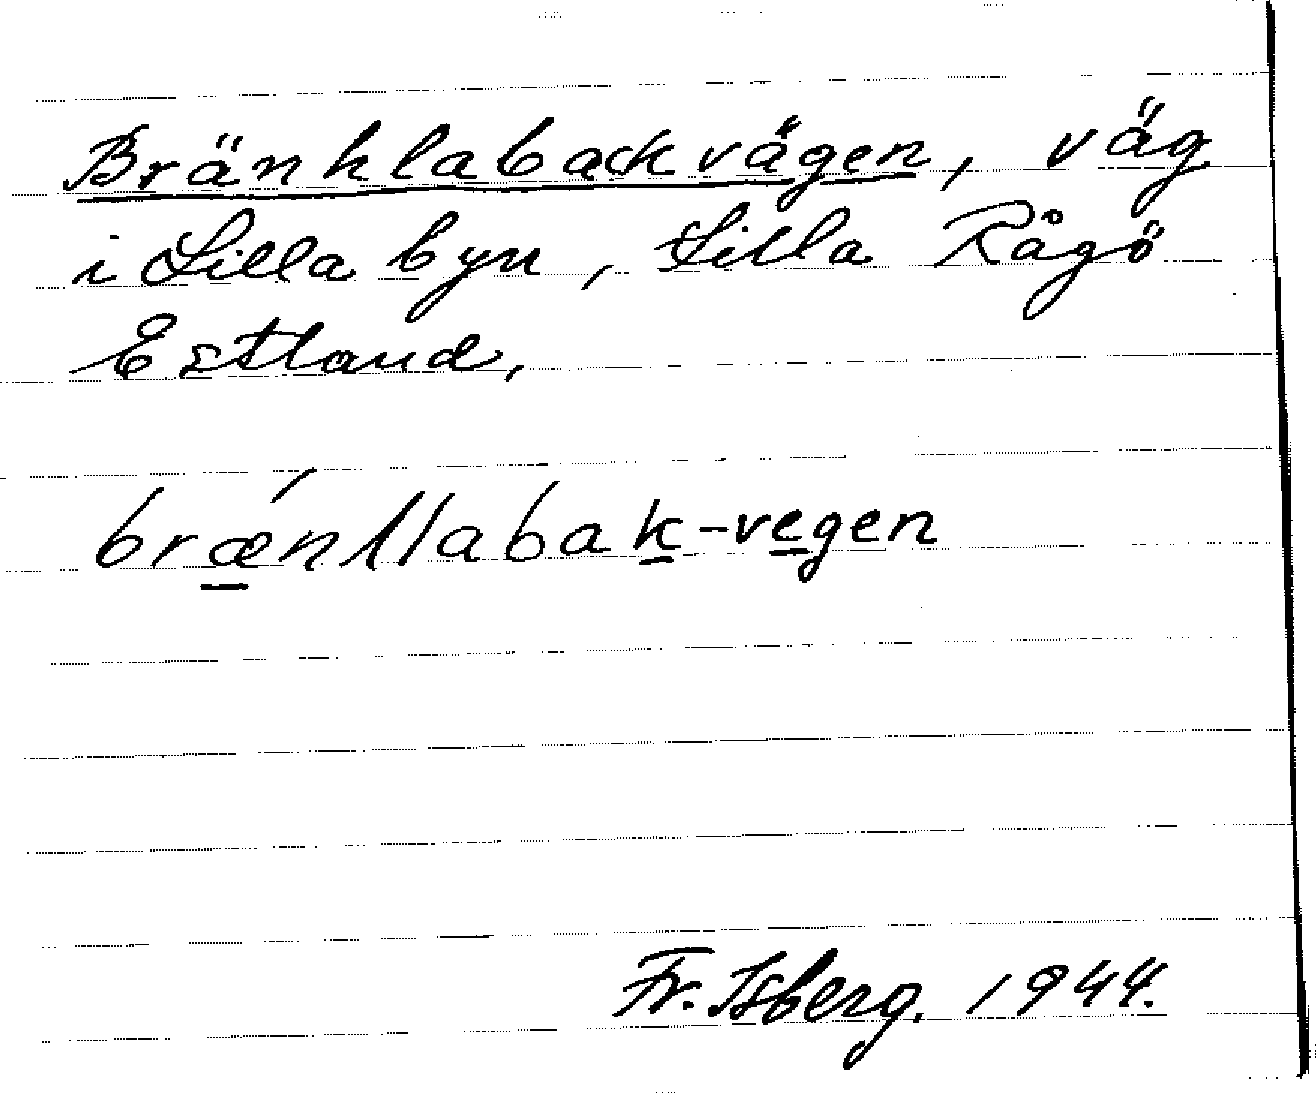 Bränhlabackvägen, väg
i Lilla byn, Lilla Rågö
Estland,
brǽnllabak-vegen
Fr. Isberg. 1944.